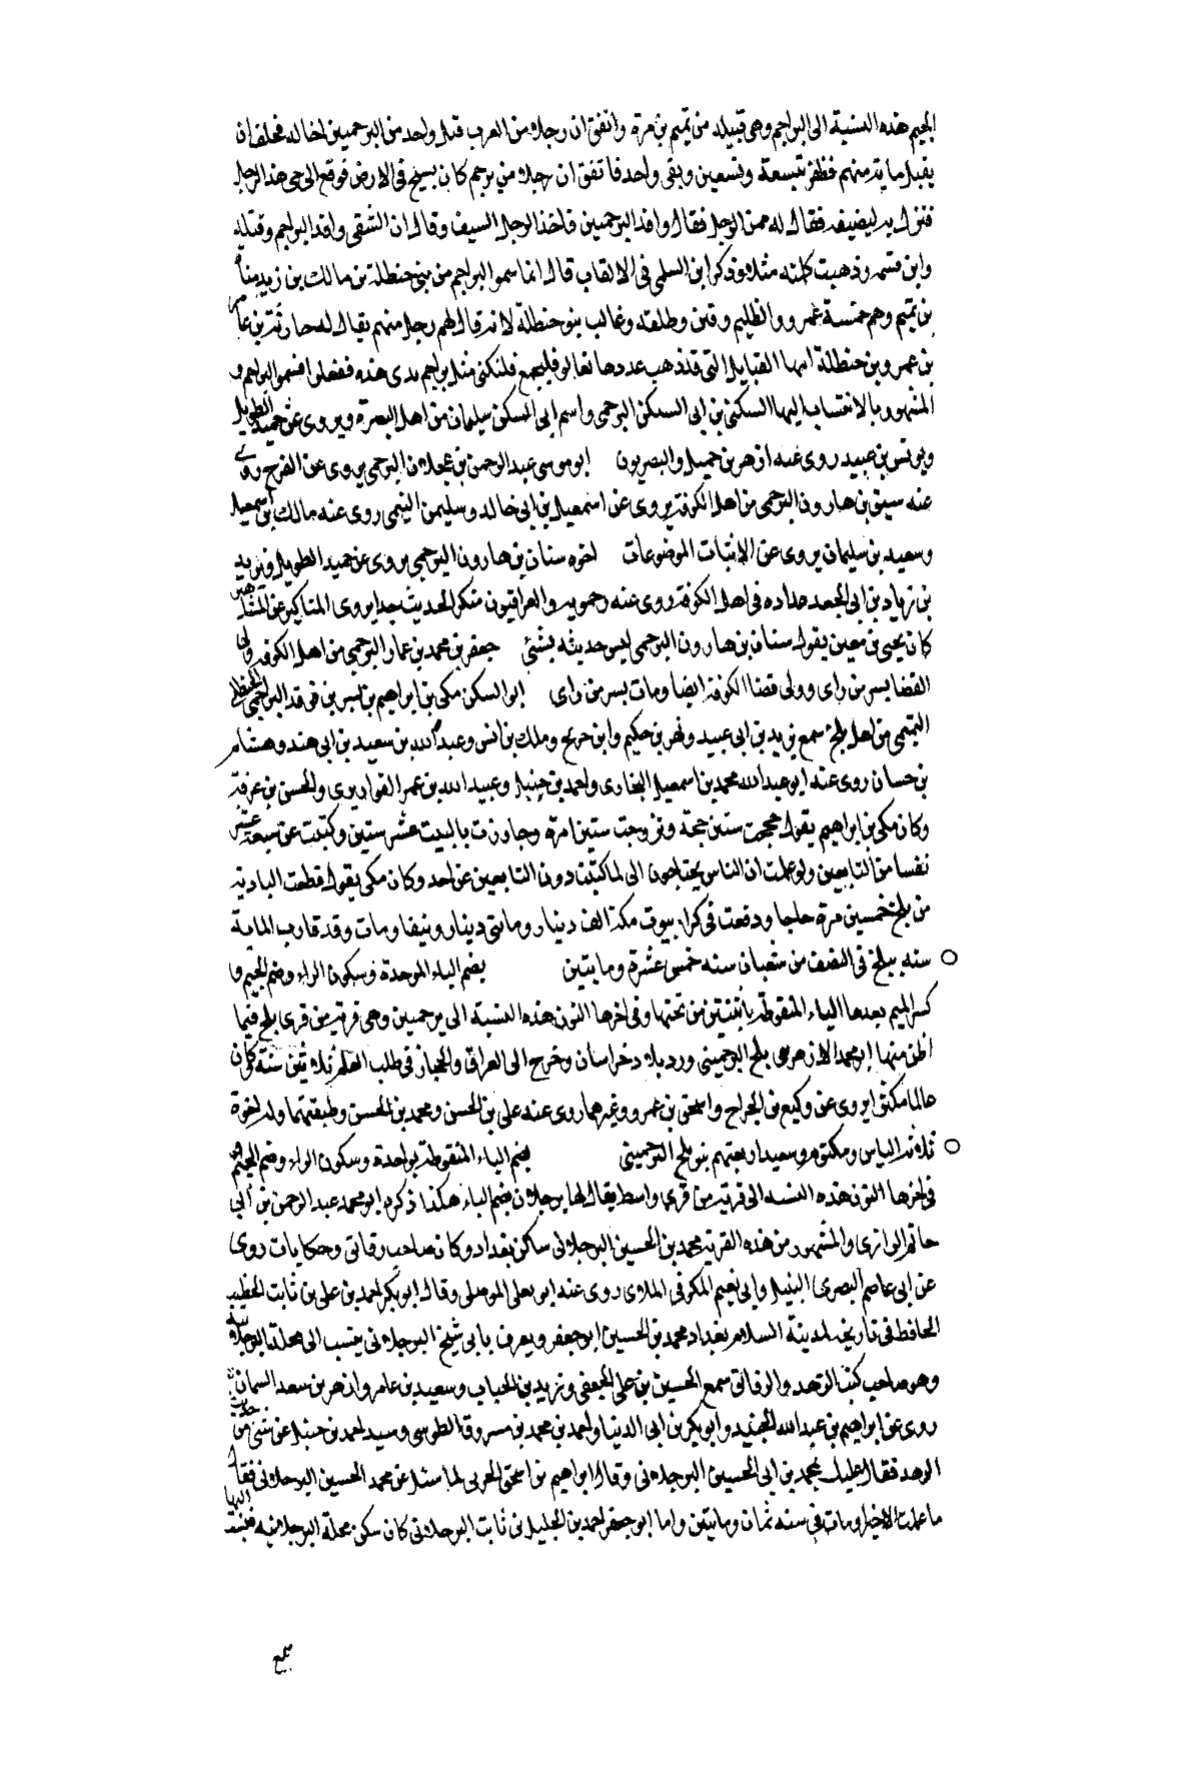 الجيم هذه النسبة الى البراجم وهى قبيلة من تميم بن مرة واتفق ان رجلا من العرب قتل واحد من البرجميين اخا له فحلف ان
يقبل ماية منهم فظفر بتسعة وتسعين وبقى واحد فاتفق ان رجلا من برجم كان يسيح فى الارض فوقع الى حى هذا الرجل
فنزل به ليضيفه فقال له ممن الرجل فقال وافد البرجميين فاخذ الرجل السيف وقال ان الشقى وافد البراجم وقتله
وابن قسمه وذهبت كلمته مثلا وذكر ابن السلمى فى الالقاب قال انما سموا البراجم من بنى حنظلة بن مالك بن زيد مناة
بن تميم وهم خمسة عمرو والظليم وقين وطلعة وغالب بنو حنظلة لانه قال لهم رجل منهم يقال له حارثة بن عامر
بن عمرو بن حنظلة ايها القبايل التى قد ذهب عددها تعالو فليجمع فلنكن مثل براجم يدى هذه ففعلوا فسموا البراجم و
المشهور بالانتساب اليها السكن بن ابى السكن البرجمى واسم ابى السكن سليمان من اهل البصرة ويروى عن حميد الطويل
ويونس بن عبيد روى عنه ازهر بن جميل والبصريون ابو موسى عبد الرحمن بن عجلان البرجمى يروى عن الفرح روى
عنه سيف بن هارون البرجمى من اهل الكوفة يروى عن اسمعيل بن ابى خالد وسليمن التيمى روى عنه مالك بن اسمعيل
وسعيد بن سليمان يروى عن الاثبات الموضوعات اخوه سنان بن هارون البرجمى يروى عن حميد الطويل ويزيد
بن زياد بن ابى الجعد عداده فى اهل الكوفة روى عنه رحمويه والعراقيون منكر الحديث جدا يروى المناكير عن المشاهير
كان يحيى بن معين يقول سنان بن هارون البرجمى ليس حديثه بشئ جعفر بن محمد بن عمار البرجمى من اهل الكوفة ولى
القضا بسر من راى وولى قضا الكوفة ايضا ومات بسر من راى ابو السكن مكى بن ابراهيم بن بشر بن فرقد البراجمى الحنظلى
التميمى من اهل بلخ سمع يزيد بن ابى عبيد وبهز بن حكيم وابن جريج وملك بن انس وعبد الله بن سعيد بن ابى هند وهشام
بن حسان روى عنه ابو عبد الله محمد بن اسمعيل البخارى واحمد بن حنبل وعبيد الله بن عمر القواريرى والحسن بن عرفة
وكان مكى بن ابراهيم يقول حججت ستين حجة وتزوجت ستين امرة وجاورت بالبيت عشر سنين وكتبت عن سبعة عشر
نفسا من التابعين ولو علمت ان الناس يحتاجون الى لما كتبت دون التابعين عن احد وكان مكى يقول قطعت البادية
من بلخ خمسين مرة حاجا ودفعت فى كراء بيوت مكة الف دينار ومائتى دينار ونيفا ومات وقد قارب الماية
سنة ببلخ فى النصف من شعبان سنه خمس عشرة ومايتين بضم الباء الموحدة وسكون الراء وضم الجيم و
كسر الميم بعدها الياء المنقوطة باثنتين من تحتها وفى اخرها النون هذه النسبة الى برجمين وهى قرية من قرى بلخ فيما
اظن منها ابو محمد الازهر بن بلخ البرجمينى ورد بلاد خراسان وخرج الى العراق والحجاز فى طلب العلم ثلاثين سنة كان
عالما مكثرا يروى عن وكيع بن الجراح واسحق بن عمرو وغيرهما روى عنه على بن الحسن ومحمد بن الحسن وطبقتهما وله اخوة
ثلاثة الياس ومكتوم وسعيد اربعتهم بنو بلخ البرجمينى بضم الباء المنقوطة بواحدة وسكون الراء وضم الجيم
فى اخرها النون هذه النسبه الى قرية من قرى واسط يقال لها برجلان بضم الباء هكذا ذكره ابو محمد عبد الرحمن بن ابى
حاتم الرازى والمشهور من هذه القرية محمد بن الحسين البرجلانى ساكن بغداد وكان صاحب رقائق وحكايات روى
عن ابى عاصم البصرى النبيل وابى نعيم الكوفى الملاى روى عنه ابو يعلى الموصلى وقال ابو بكر احمد بن على بن ثابت الخطيب
الحافظ فى تاريخه لمدينة السلام بغداد محمد بن الحسين ابو جعفر ويعرف بابى شيخ البرجلانى ينسب الى محلة البرجلانية
وهو صاحب كتب الزهد والرقائق سمع الحسين بن على الجعفى وزيد بن الحباب وسعيد بن عامر وازهر بن سعد السمان
روى عن ابراهيم بن عبد الله الجنيد وابو بكر بن ابى الدنيا واحمد بن محمد بن مسروق الطوسى وسيد احمد بن حنبل عن شئ من حديث
الزهد فقال عليك بمحمد بن ابى الحسين البرجلانى وقال ابراهيم بن اسحق الحربى لما سئل عن محمد الحسين البرجلانى فقال
ما علمت الا خيرا ومات فى سنه ثمان ومايتين واما ابو جعفر احمد بن الخليل بن ثابت البرجلانى كان سكن محلة البرجلانيه فينسب اليها
بلغ